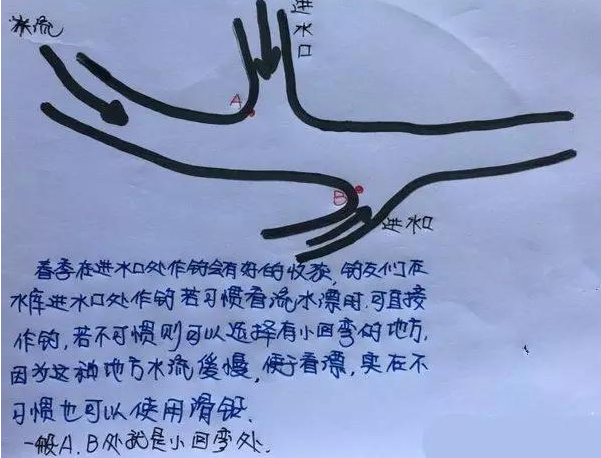 水流
进水口
A
B
进水口
春季在进水口处作钓会有好的收获,钓友们在
水库进水口处作钓若习惯看流水漂时,可直接
作钓,若不习惯则可以选择有小回弯的地方,
因为这种地方水流缓慢,便于看漂,实在不
习惯也可以使用滑铅.
一般A.B处就是小回弯处.